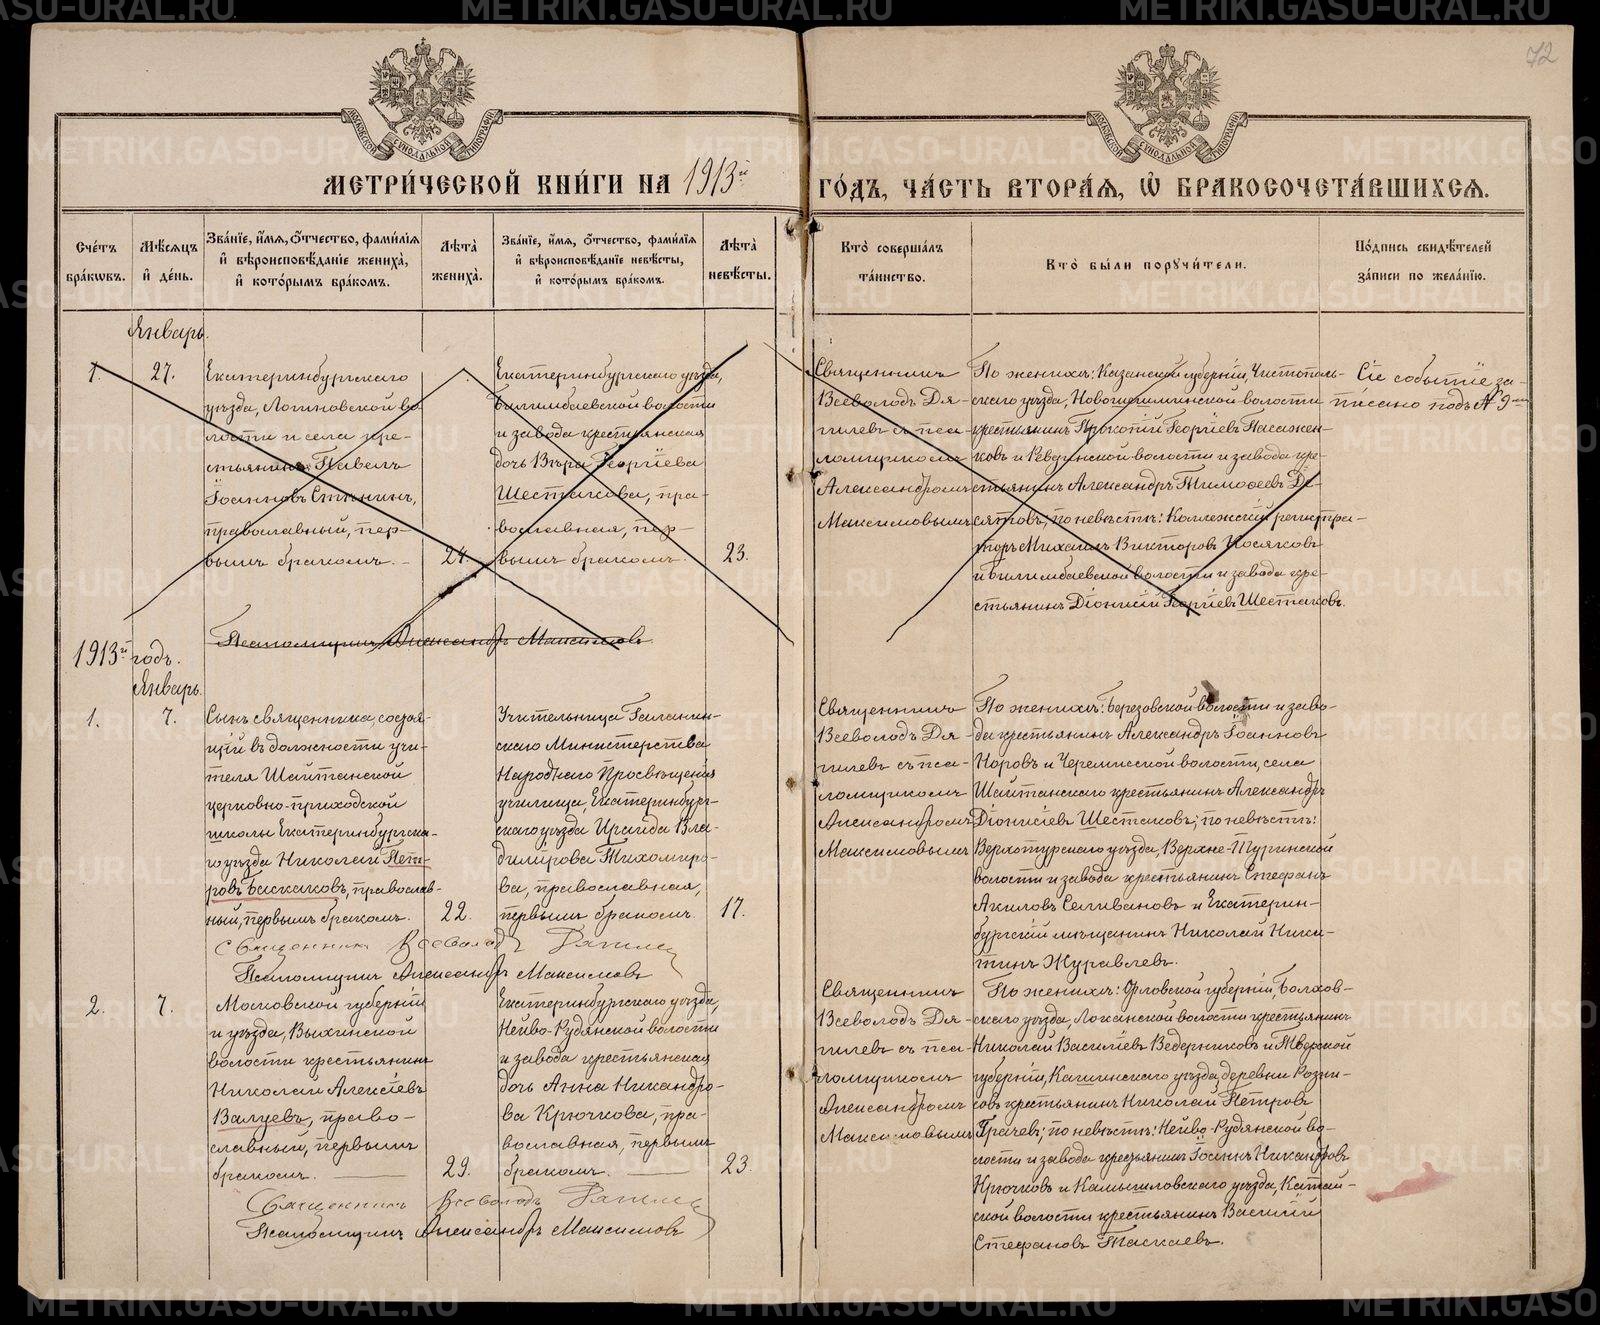 72
МЕТРИ́ЧЕСКОЙ КНИ́ГИ НА 1913й ГО́ДЪ, ЧА́СТЬ ВТОРА́Я, Ѽ БРАКОСОЧЕТА́ВШИХСЯ.
Сче́тъ бра́кѡвъ.
Мѣ́сяцъ и҆ де́нь.
Зва́нїе, и҆́мя, ѻ҆́тчество, фами́лїя и҆ вѣроисповѣ́данїе жениха̀, и҆ кото́рымъ бра́комъ.
Лѣта̀ жениха̀.
Зва́нїе, и҆́мя, ѻ҆́тчество, фами́лїя и҆ вѣроисповѣ́данїе невѣ́сты, и҆ кото́рымъ бра́комъ.
Лѣта̀ невѣ́сты.
Кто̀ соверша́лъ та́инство.
Кто̀ бы́ли порꙋчи́тели.
По́дпись свидѣ́телей за́писи по жела́нїю.
Январь.
1.
27.
Екатеринбургскаго
уѣзда, Логиновской во
лости и села кре-
стьянинъ Павелъ
Іоанновъ Стѣнинъ,
православный, пер-
вымъ бракомъ.
24.
Екатеринбургскаго уѣзда,
Билимбаевской волости
и завода крестьянская
дочь Вѣра Георгіева
Шестакова, пра-
вославная, пер-
вымъ бракомъ.
23.
Священникъ
Всеволодъ Дя-
гилевъ съ пса-
ломщикомъ
Александромъ
Максимовымъ
По женихѣ: Казанской губерніи, Чистополь-
скаго уѣзда, Новошешминской волости
крестьянинъ Прокопій Георгіевъ Пасажен-
ковъ и Ревдинской волости и завода кре-
стьянинъ Александръ Тимоѳеевъ Де-
сятовъ; по невѣстѣ: Коллежскій регистра-
торъ Михаилъ Викторовъ Носяковъ
и Билимбаевской волости и завода кре-
стьянинъ Діонисій Георгіевъ Шестаковъ.
Сіе событіе за-
писано подъ № 9мъ
Псаломщикъ Александръ Максимовъ
1913й годъ.
Январь.
1.
7.
Сынъ священника, состоя-
щій въ должности учи-
теля Шайтанской
церковно-приходской
школы Екатеринбургска-
го уѣзда Николай Пет-
ровъ Баскаковъ, православ-
ный, первымъ бракомъ.
22.
Учительница Галанин-
скаго Министерства
Народнаго Просвѣщенія
училища, Екатеринбург-
скаго уѣзда Ираида Вла-
димірова Тихомиро-
ва, православная,
первымъ бракомъ.
17.
Священникъ
Всеволодъ Дя-
гилевъ съ пса-
ломщикомъ
Александромъ
Максимовымъ
По женихѣ: Березовской волости и заво-
да крестьянинъ Александръ Іоанновъ
Норовъ и Черемисской волости, села
Шайтанскаго крестьянинъ Александръ
Діонисіевъ Шестаковъ; по невѣстѣ:
Верхотурскаго уѣзда, Верхне-Туринской
волости и завода крестьянинъ Стефанъ
Акиловъ Селивановъ и Екатерин-
бургскій мѣщанинъ Николай Ники-
тинъ Журавлевъ.
Священникъ Всеволодъ Дягилевъ
Псаломщикъ Александръ Максимовъ
2.
7.
Московской губерніи
и уѣзда, Выхинской
волости крестьянинъ
Николай Алексѣевъ
Валуевъ, право-
славный, первымъ
бракомъ.
29.
Екатеринбургскаго уѣзда,
Нейво-Рудянской волости
и завода крестьянская
дочь Анна Никандро-
ва Крючкова, пра-
вославная, первымъ
бракомъ.
23.
Священникъ
Всеволодъ Дя-
гилевъ съ пса-
ломщикомъ
Александромъ
Максимовымъ
По женихѣ: Орловской губерніи, Болхов-
скаго уѣзда, Локанской волости крестьянинъ
Николай Василіевъ Ведерниковъ и Тверской
губерніи, Кашинскаго уѣзда, деревни Розни-
совъ крестьянинъ Николай Петровъ
Грачевъ; по невѣстѣ: Нейво-Рудянской во-
лости и завода крестьянинъ Іоаннъ Никандровъ
Крючковъ и Камышловскаго уѣзда, Катай-
ской волости крестьянинъ Василій
Стефановъ Таскаевъ.
Священникъ Всеволодъ Дягилевъ
Псаломщикъ Александръ Максимовъ